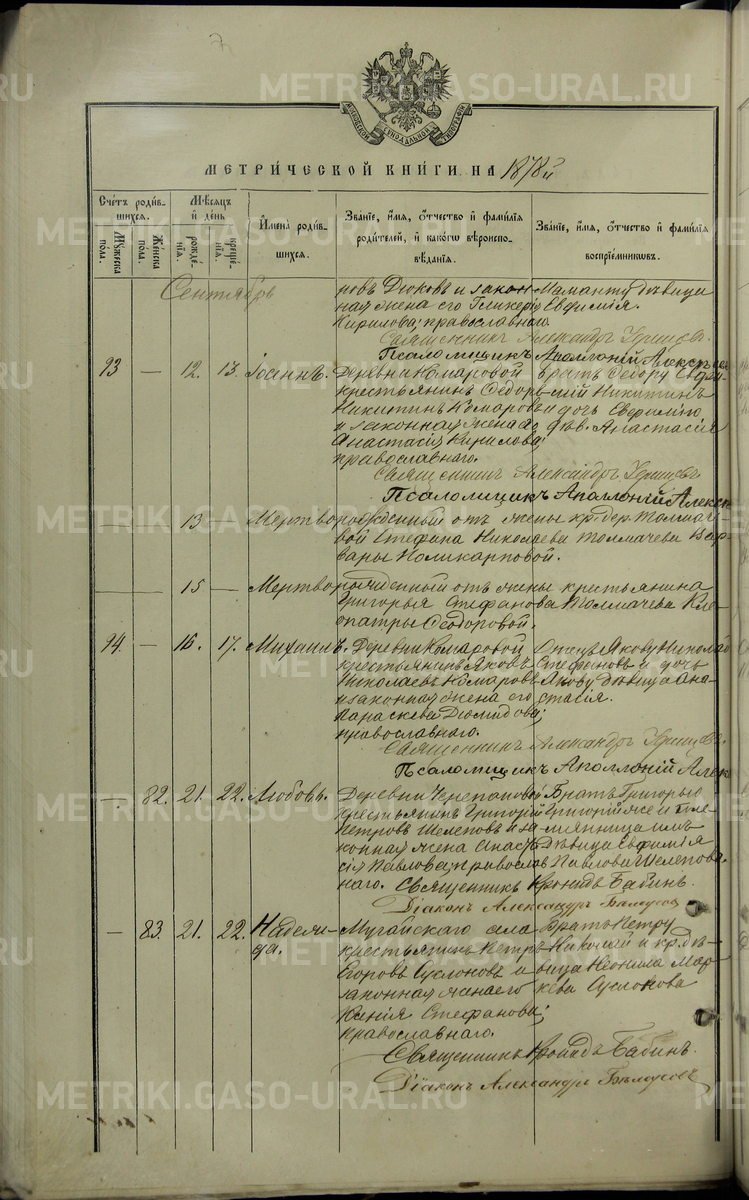 МЕТРИ́ЧЕСКОЙ КНИ́ГИ НА 1878й
Сче́тъ роди́в-
шихся.
Мѣ́сяцъ
и́ де́нь
И҆мена̀ роди́в-
шихся.
Зва́нїе, и҆́мя, ѻ҆́тчество и҆ фами́лїя
роди́телей, и҆ како́гѡ вѣроиспо-
вѣ́данїя.
Зва́нїе, и҆́мя, ѻ҆́тчество и҆ фами́лїя
воспрїе́мникѡвъ.
Му́жеска
по́ла.
Же́нска
по́ла.
рожде́-
нїя.
креще́-
нїя.
Сентябрь
ровъ Дюковъ и закон-
ная жена его Гликерія
Кирилова; православнаго.
Маманту дѣвица
Евфимія.
Священникъ Александръ
Псаломщикъ Аполлоній Алекс
93 — 12. 13. Іоаннъ.
Деревни Комаровой
крестьянинъ Ѳедоръ
Никитинъ Комаровъ
и законная жена его
Анастасія Кирилова;
православнаго.
Братъ Ѳедору
Никитинъ
и дочь Евфимію
дѣв. Анастасія
Священникъ Александръ
Псаломщикъ Аполлоній Алекс
— — 13 — Мертворожденный отъ жены кр. дер. Толмаче-
вой Стефана Николаева Толмачева Вар-
вары Поликарповой.
— — 15 — Мертворожденный отъ жены крестьянина
Григорья Стефанова Толмачева Кле-
опатры Ѳеодоровой.
94 — 16. 17. Михаилъ.
Деревни Комаровой
крестьянинъ Яковъ
Николаевъ Комаровъ
и законная жена его
Параскева Діомидова;
православнаго.
Отецъ Якову Николай
Стефановъ и дочь
Якову дѣвица Ана-
стасія.
Священникъ Александръ
Псаломщикъ Аполлоній Алек
— 82. 21. 22. Любовь.
Деревни Черепановой
крестьянинъ Григорій
Петровъ Шелеповъ и за-
конная жена Анаста-
сія Павлова; православ-
наго.
Братъ Григорью
Григорій же и пле-
мянница имъ
дѣвица Евфимія
Павлова Шелепова.
Священникъ Кронидъ Бабинъ.
Діаконъ Александръ Бѣлоусовъ
— 83. 21. 22. Надеж-
да.
Мугайскаго села
крестьянинъ Петръ
Егоровъ Суслоновъ и
законная жена его
Ксенія Стефанова;
православнаго.
Братъ Петру
и кр. дѣ-
вица Неонила Мар-
кева Суслонова
Священникъ Кронидъ Бабинъ.
Діаконъ Александръ Бѣлоусовъ
METRIKI.GASO-URAL.RU